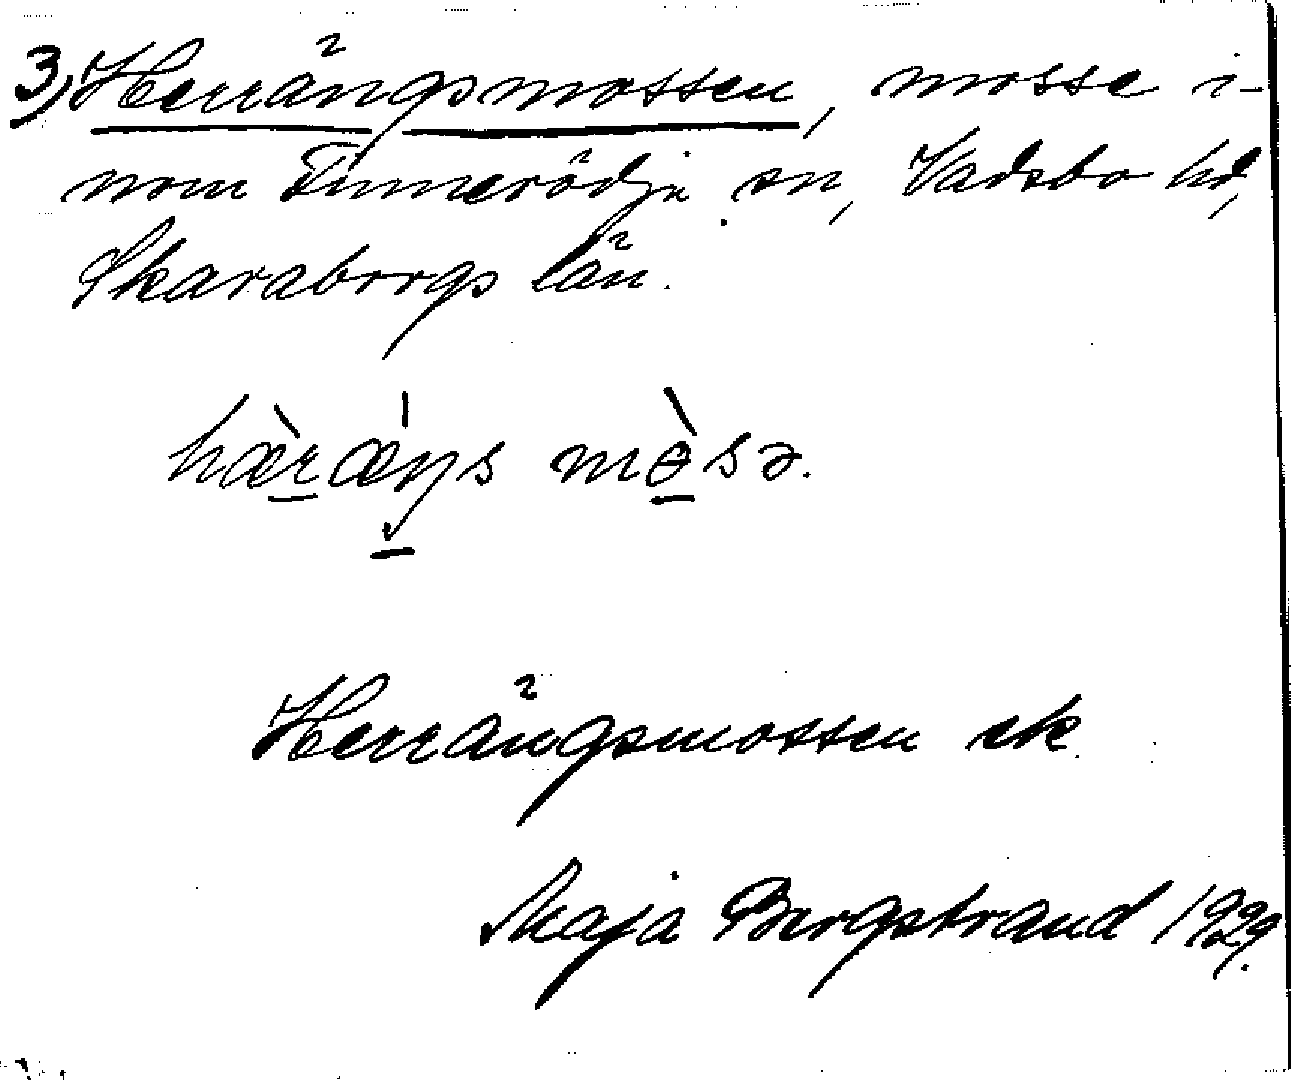 3) Herrängsmossen, mosse i-
nom Finnerödja sn, Vadsbo hd,
Skaraborgs län.
hæ̀ræ̍ŋs mɵ̀sə.
Herrängsmossen ek
Maja Bergstrand 1929.